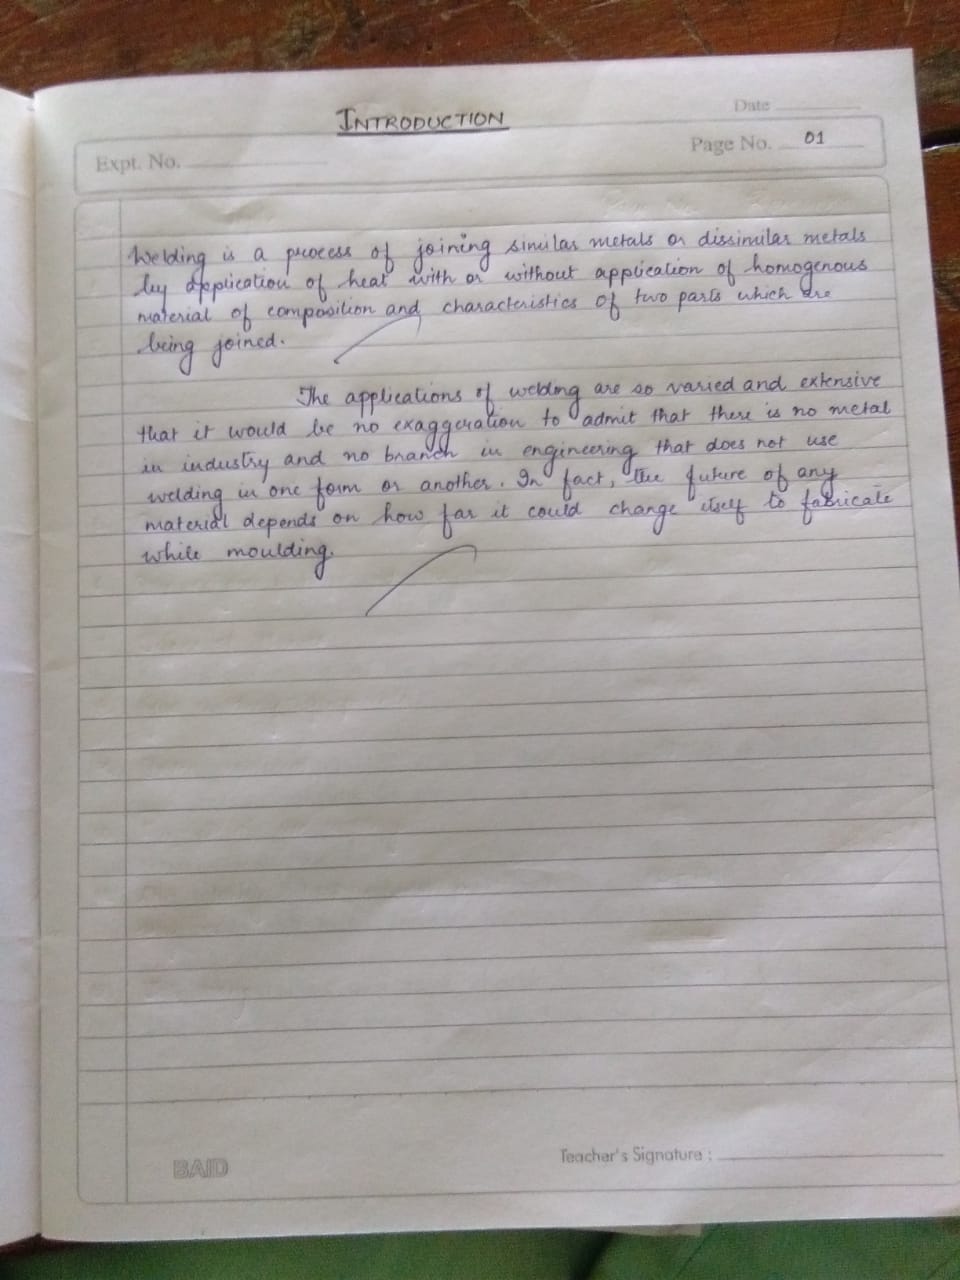 INTRODUCTION
Date
Expt. No.
Page No. 01
Welding is a process of joining similar metals or dissimilar metals
by application of heat with or without application of homogenous
material of composition and characteristics of two parts which are
being joined.
The applications of welding are so varied and extensive
that it would be no exaggeration to admit that there is no metal
in industry and no branch in engineering that does not use
welding in one form or another. In fact, the future of any
material depends on how far it could change itself to fabricate
while moulding.
BAID
Teacher's Signature :